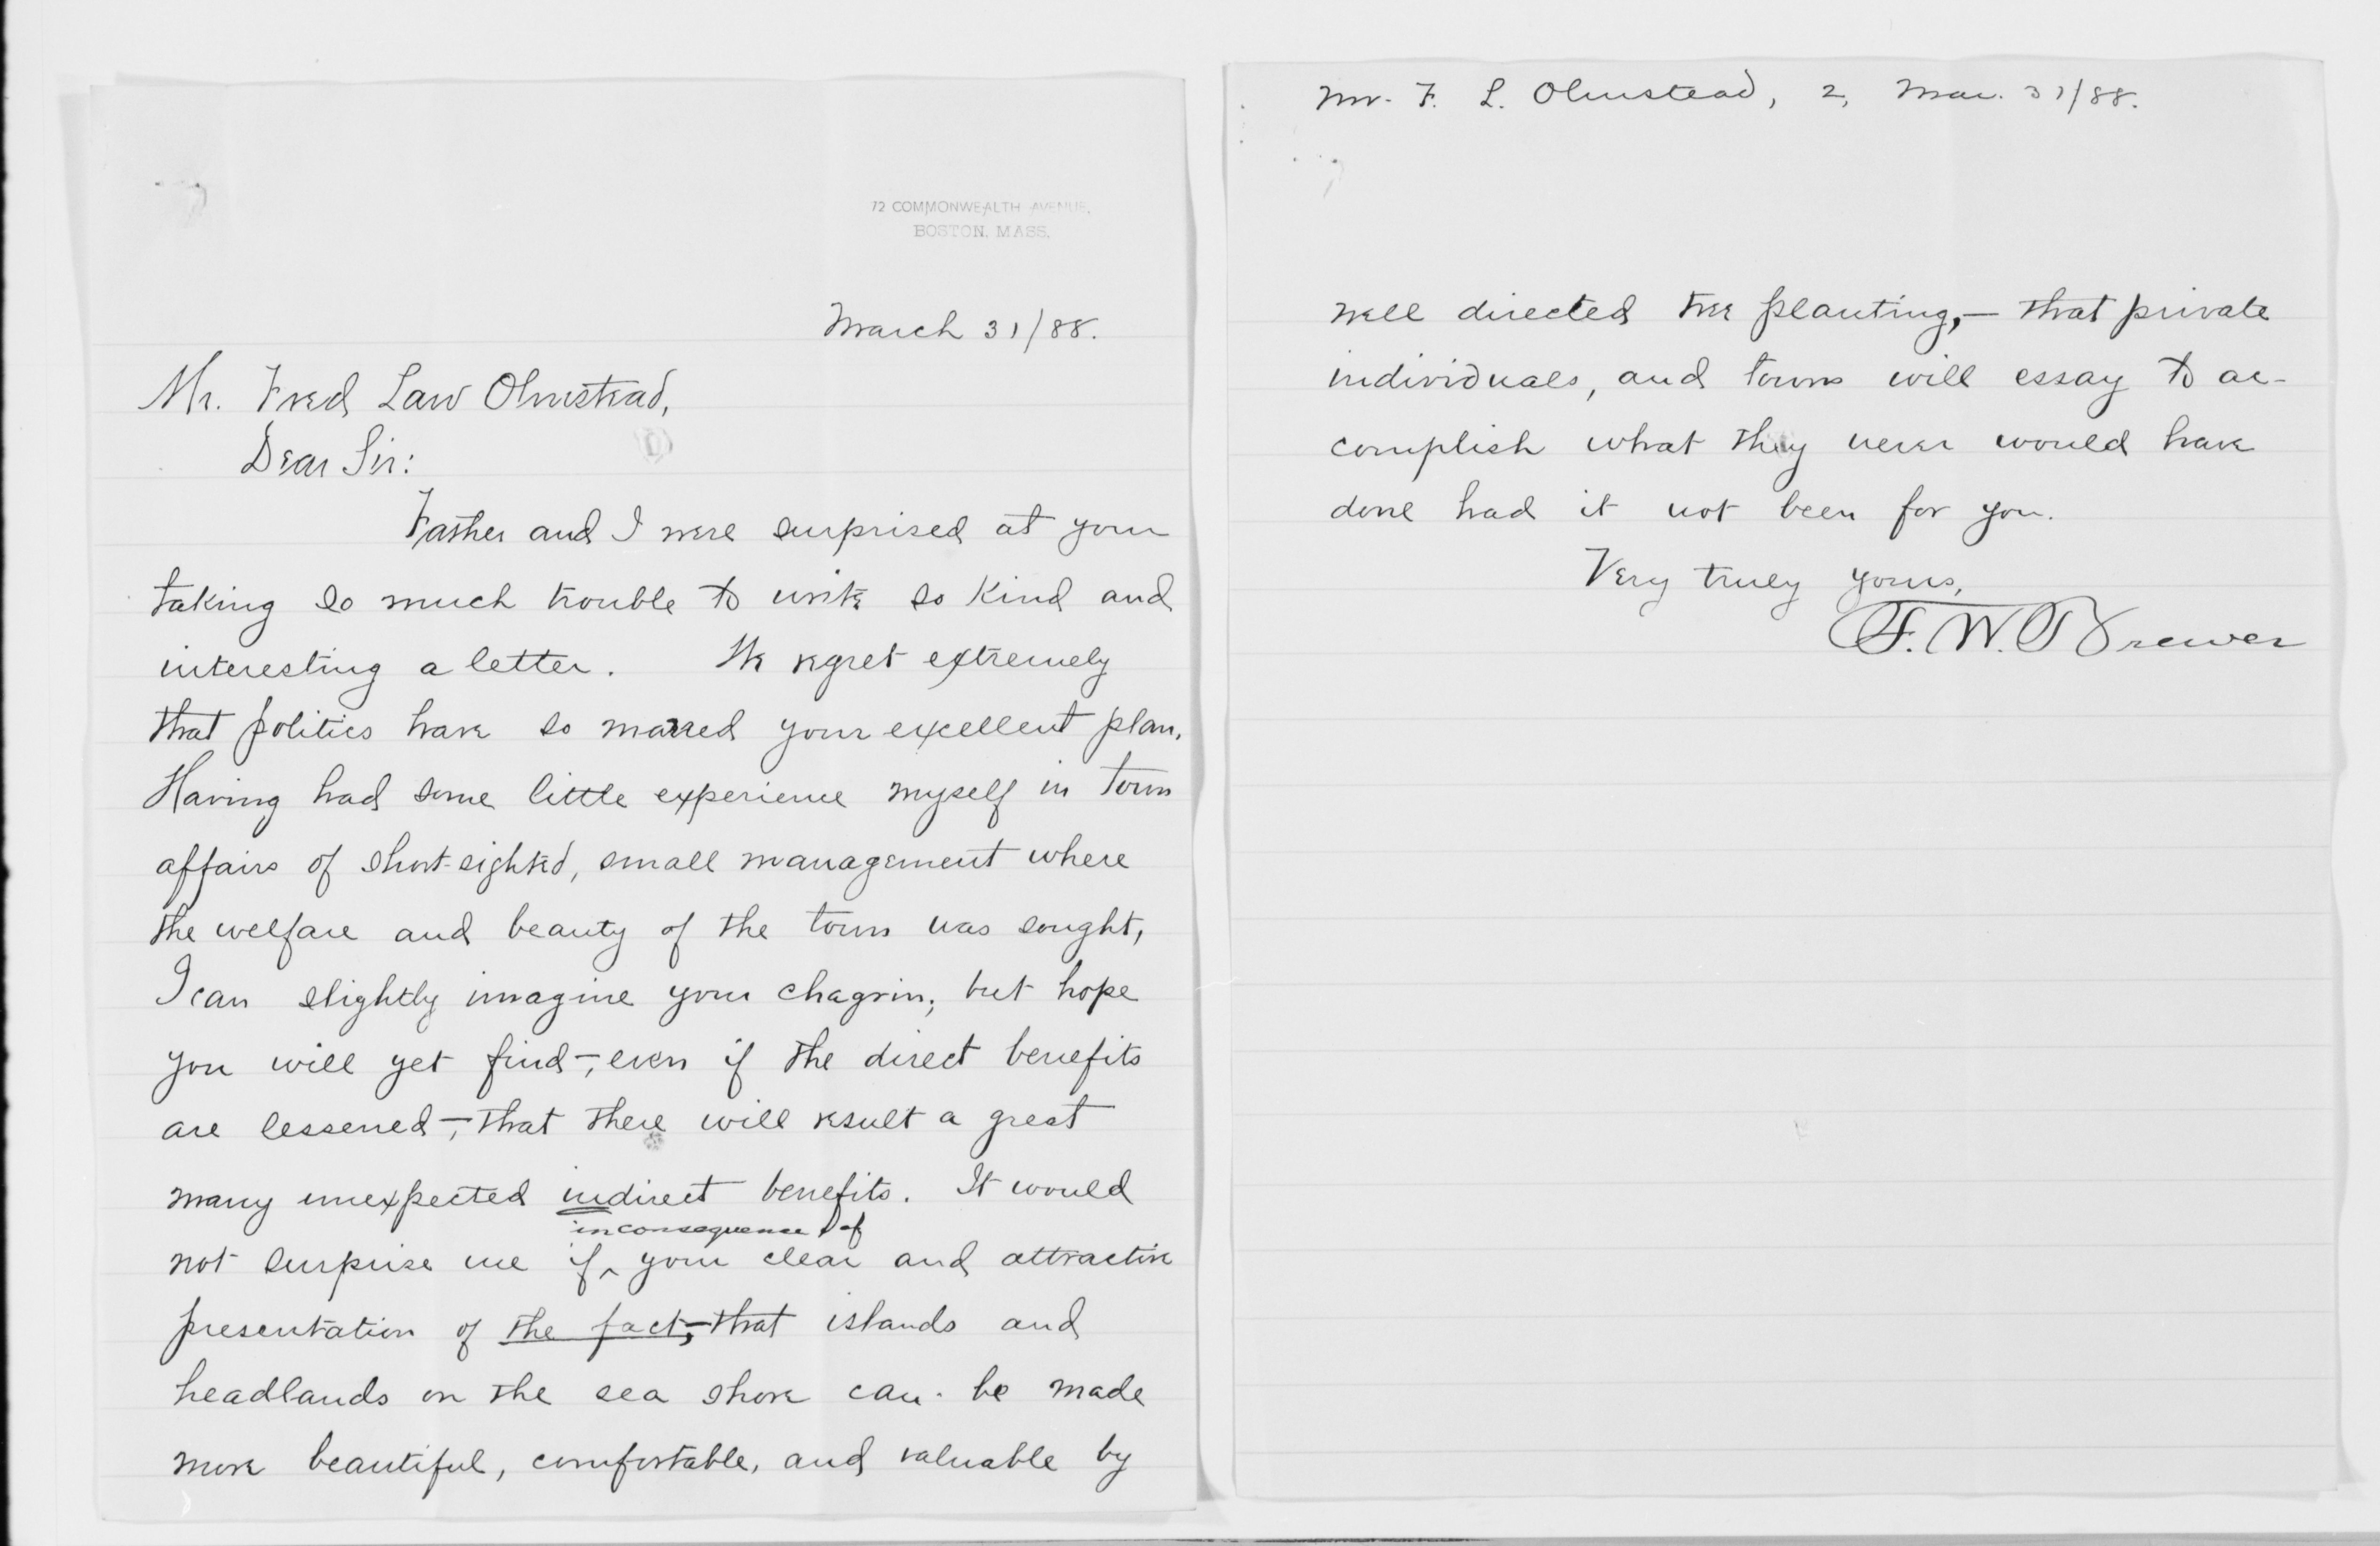 72 COMMONWEALTH AVENUE,
BOSTON, MASS.
March 31/88.
Mr. Fred Law Olmstead,
Dear Sir:
Father and I were surprised at your
taking so much trouble to write so kind and
interesting a letter. We regret extremely
that politics have so marred your excellent plan.
Having had some little experience myself in town
affairs of short-sighted, small management where
the welfare and beauty of the town was sought,
I can slightly imagine your chagrin; but hope
you will yet find -, even if the direct benefits
are lessened -, that there will result a great
many unexpected indirect benefits. It would
in consequence of
not surprise me if ^ your clear and attractive
presentation of the fact, - that islands and
headlands on the sea shore can be made
more beautiful, comfortable, and valuable by
Mr. F. L. Olmstead, 2, Mar. 31/88.
well directed tree planting, - that private
individuals, and towns will essay to ac-
complish what they never would have
done had it not been for you.
Very truly yours,
F. W. Brewer